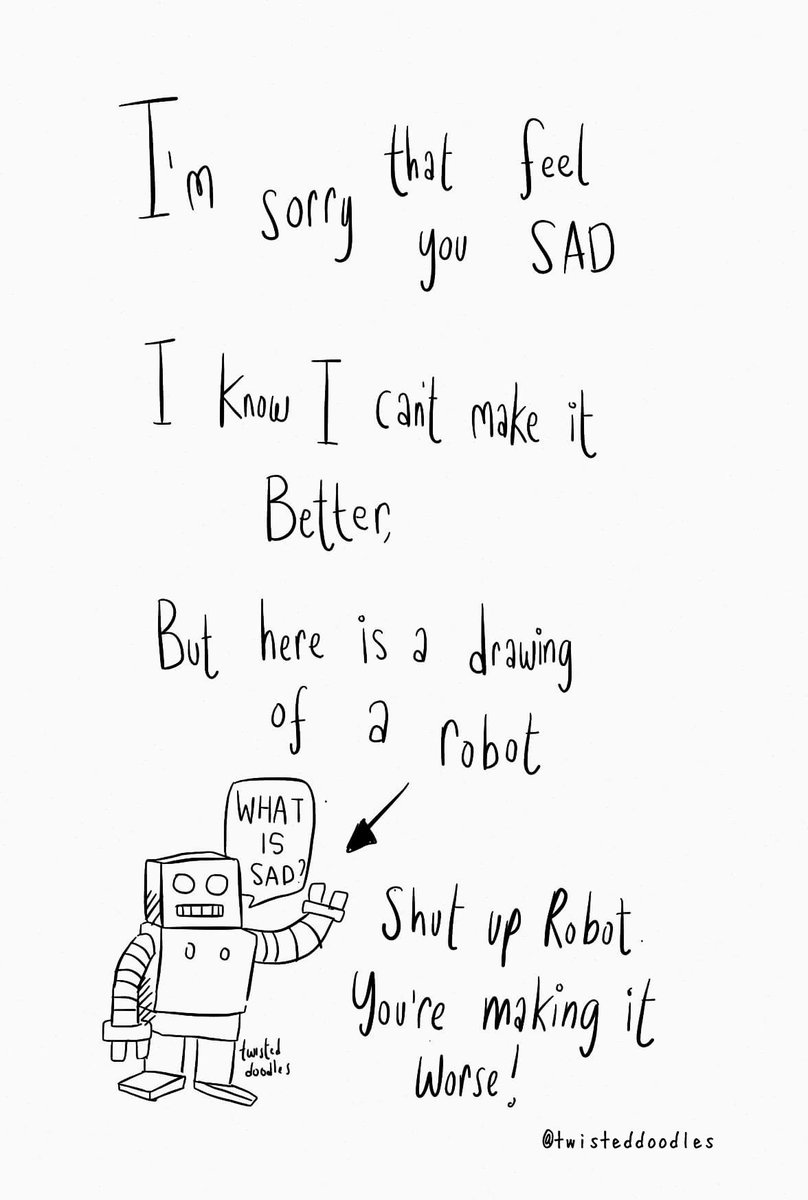 I'm sorry that feel
you SAD
I know I can't make it
Better,
But here is a drawing
of a robot
WHAT
IS
SAD?
Shut up Robot.
You're making it
worse!
twisted
doodles
@twisteddoodles